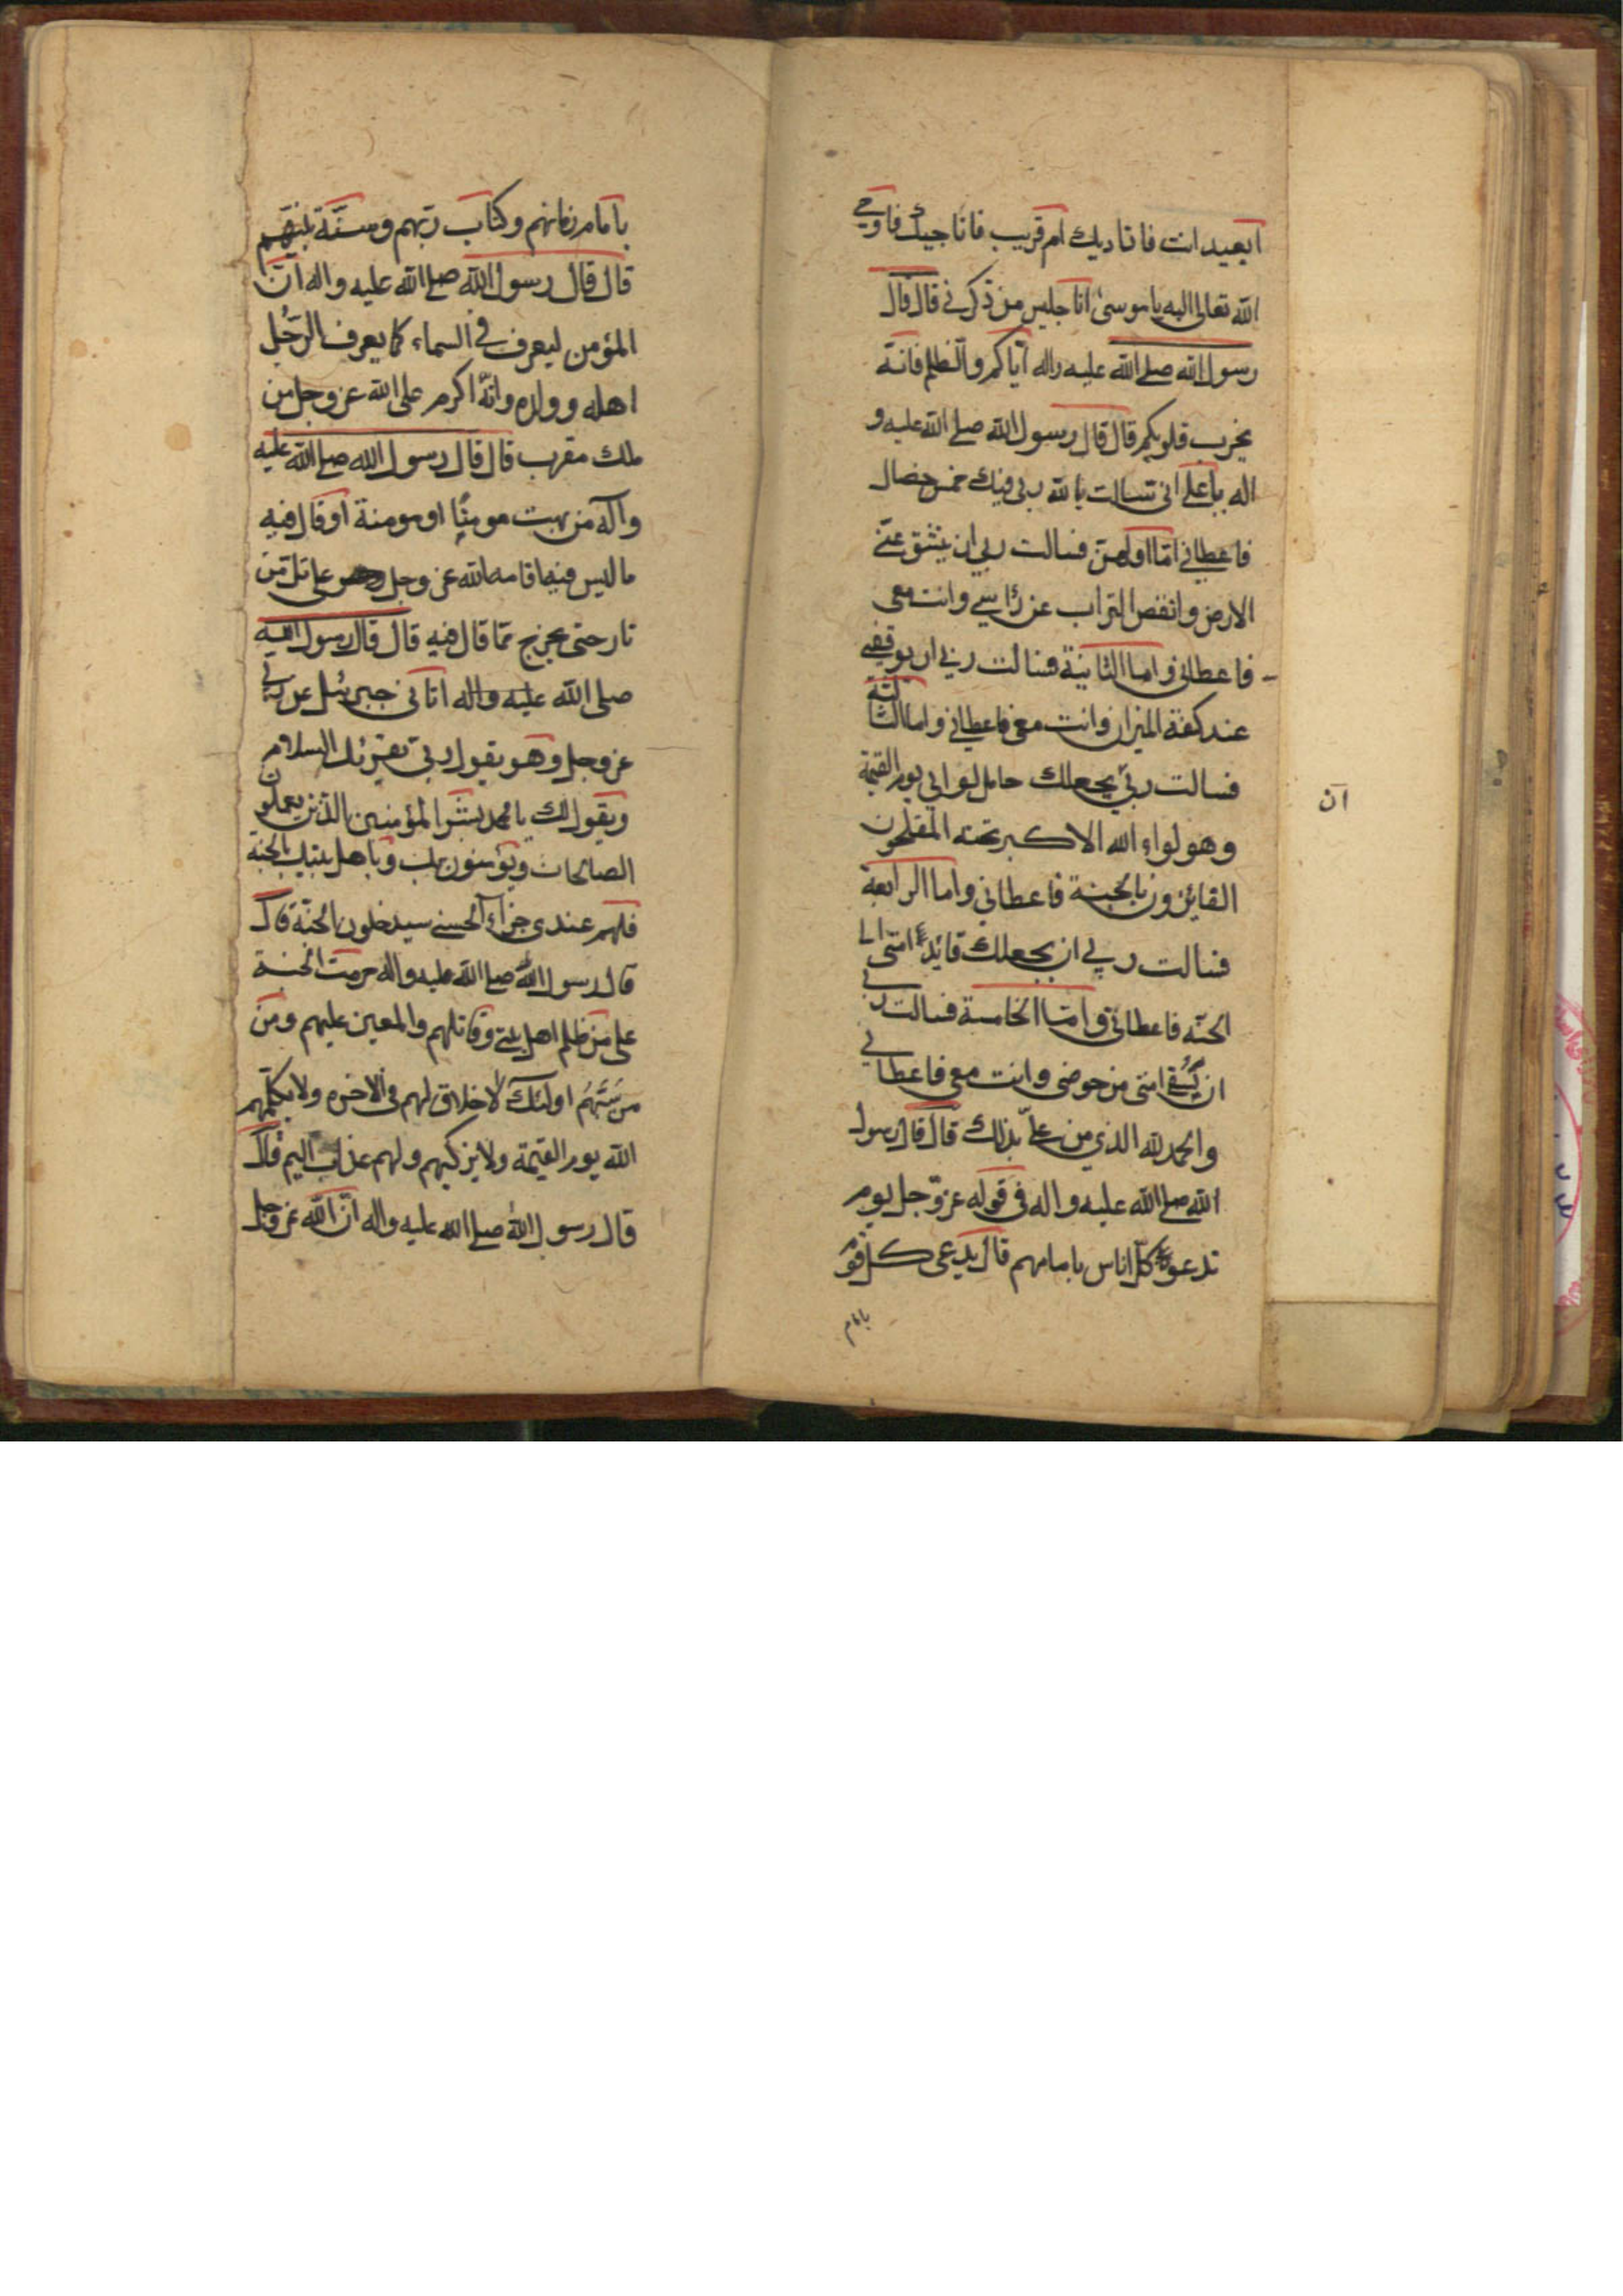 ابعید انت فاناديك ام قريب فاناجيك فاوحى
الله تعالى اليه يا موسى انا جليس من ذكرني قال قال
رسول الله صلى الله عليه واله اياكم والظلم فانه
يخرب قلوبكم قال قال رسول الله صلى الله عليه و
اله يا على انى سالت يا لله ربى فيك خمس خصال
فاعطاني اما اولهن فسالت ربي ان ينشق عنى
الارض وانفض التراب عن رأسي وانت معى
فاعطانى واما الثانية فسالت ربي ان يوقفنى
عند كفة الميزان وانت معى فاعطانى واما الثالثة
فسالت ربي يجعلك حامل لوائي يوم القيمة
وهو لواء الله الاكبر تحته المفلحون
الفايزون بالجنة فاعطاني واما الرابعة
فسالت ربي ان يجعلك قايد امتى الى
الجنه فاعطانى واما الخامسة فسالت ربي
ان يسقى امتى من حوضى وانت معى فاعطانى
والحمد لله الذي من علىّ بذلك قال قال رسول
الله صلى الله عليه واله فى قوله عز وجل يوم
ندعو كل اناس بامامهم قال يدعى كل قوم
بامام
ان
بامام زمانهم وكتاب ربهم وسنة نبيهم
قال قال رسول الله صلى الله عليه واله ان
المؤمن ليعرف فى السماء كما يعرف الرجُل
اهله وولده وانّه اكرم على الله عز وجل من
ملك مقرب قال قال رسول الله صلى الله عليه
وآله من بهت مومنًا او مومنة او قال فيه
ما ليس فيه اقامه الله عز وجل على تل من
نار حتى يخرج مما قال فيه قال قال رسول الله
صلى الله عليه واله اتانى جبرئيل عن ربي
عز وجل وهو يقول ربى يقرئك السلام
ويقول لك يا محمد بشر المؤمنين الذين يعملون
الصالحات ويؤمنون بك وباهل بيتك بالجنة
فلهم عندى جزاء الحسنى سيدخلون الجنة قال
قال رسول الله صلى الله عليه واله حرمت الجنة
على من ظلم اهل بيتى وقاتلهم والمعين عليهم ومن
من سَبَّهُم اولئك لا خلاق لهم فى الاخره ولا يكلمهم
الله يوم القيمة ولا يزكيهم ولهم عذاب اليم قال
قال رسول الله صلى الله عليه واله ان الله عز وجل